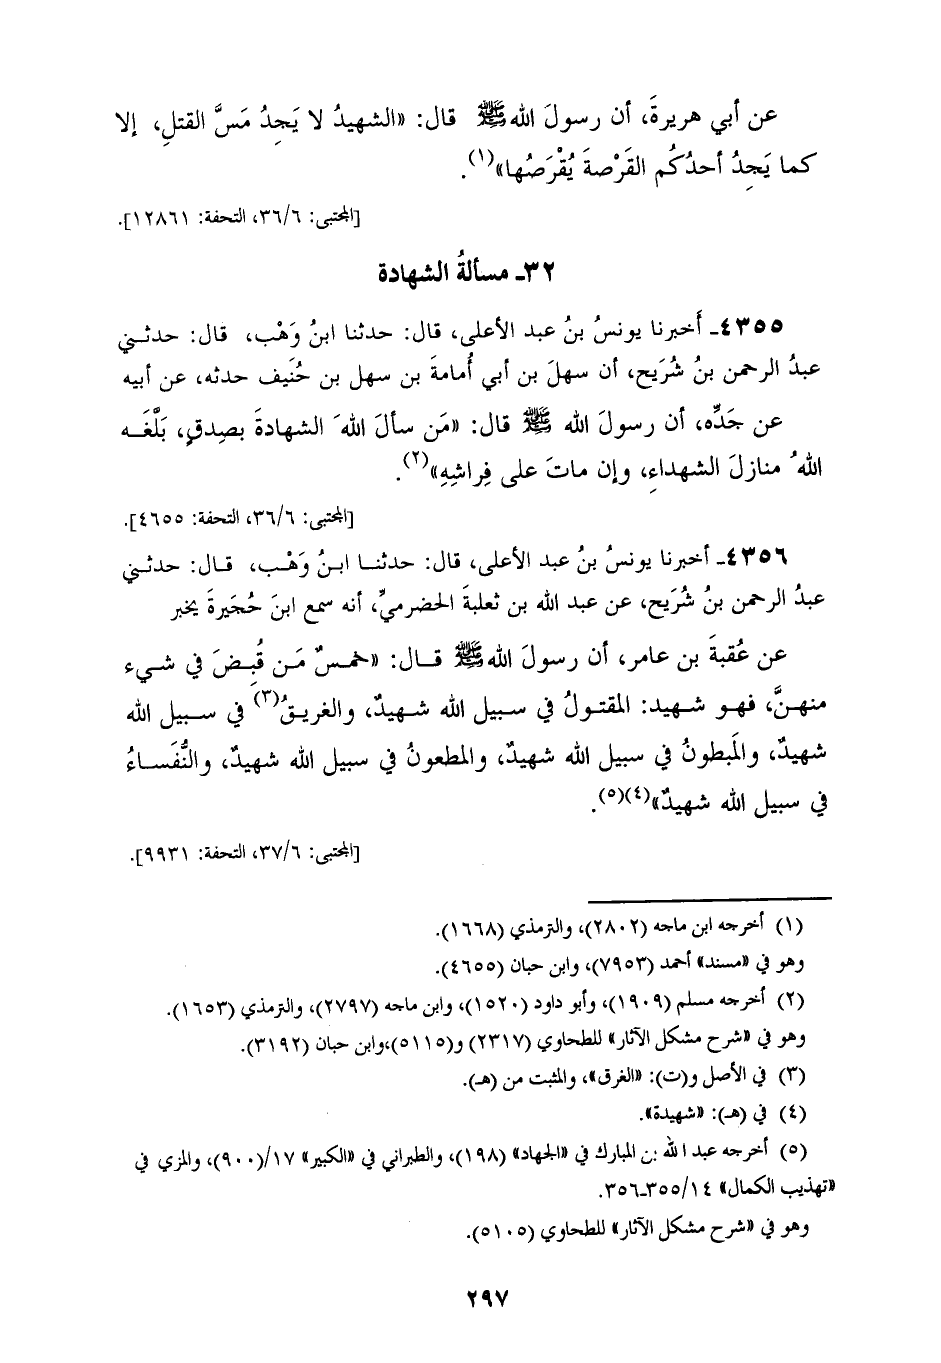 عن أبي هريرةَ، أن رسولَ الله ﷺ قال: «الشهيدُ لا يَجِدُ مَسَّ القتلِ، إلا
كما يَجِدُ أحدُكُم القَرْصةَ يُقْرَصُها»(١).
[المجتبى: ٣٦/٦، التحفة: ١٢٨٦١].
٣٢ـ مسألةُ الشهادة
٤٣٥٥ـ أَخبرنا يونسُ بنُ عبد الأعلى، قال: حدثنا ابنُ وَهْب، قال: حدثني
عبدُ الرحمن بنُ شُرَيح، أن سهلَ بن أبي أُمامةَ بن سهل بن حُنَيف حدثه، عن أبيه
عن جَدِّه، أن رسولَ الله ﷺ قال: «مَن سألَ اللهَ الشهادةَ بصِدقٍ، بَلَّغَه
اللهُ منازلَ الشهداءِ، وإن ماتَ على فِراشِهِ»(٢).
[المجتبى: ٣٦/٦، التحفة: ٤٦٥٥].
٤٣٥٦ـ أخبرنا يونسُ بنُ عبد الأعلى، قال: حدثنا ابنُ وَهْب، قال: حدثني
عبدُ الرحمن بنُ شُرَيح، عن عبد الله بن ثعلبةَ الحضرميِّ، أنه سمع ابنَ حُجَيرةَ يخبر
عن عُقبةَ بن عامر، أن رسولَ الله ﷺ قال: «خمسٌ مَن قُبِضَ في شيء
منهنَّ، فهو شهيد: المقتولُ في سبيل الله شهيدٌ، والغريقُ(٣) في سبيل الله
شهيدٌ، والمَبطونُ في سبيل الله شهيدٌ، والمطعونُ في سبيل الله شهيدٌ، والنُّفَساءُ
في سبيل الله شهيدٌ»(٤)(٥).
[المجتبى: ٣٧/٦، التحفة: ٩٩٣١].
(١) أخرجه ابن ماجه (٢٨٠٢)، والترمذي (١٦٦٨).
وهو في «مسند» أحمد (٧٩٥٣)، وابن حبان (٤٦٥٥).
(٢) أخرجه مسلم (١٩٠٩)، وأبو داود (١٥٢٠)، وابن ماجه (٢٧٩٧)، والترمذي (١٦٥٣).
وهو في «شرح مشكل الآثار» للطحاوي (٢٣١٧) و(٥١١٥)،وابن حبان (٣١٩٢).
(٣) في الأصل و(ت): «الغرق»، والمثبت من (هـ).
(٤) في (هـ): «شهيدة».
(٥) أخرجه عبد الله بن المبارك في «الجهاد» (١٩٨)، والطبراني في «الكبير» ١٧/(٩٠٠)، والمزي في
«تهذيب الكمال» ٣٥٥/١٤ـ٣٥٦.
وهو في «شرح مشكل الآثار» للطحاوي (٥١٠٥).
٢٩٧